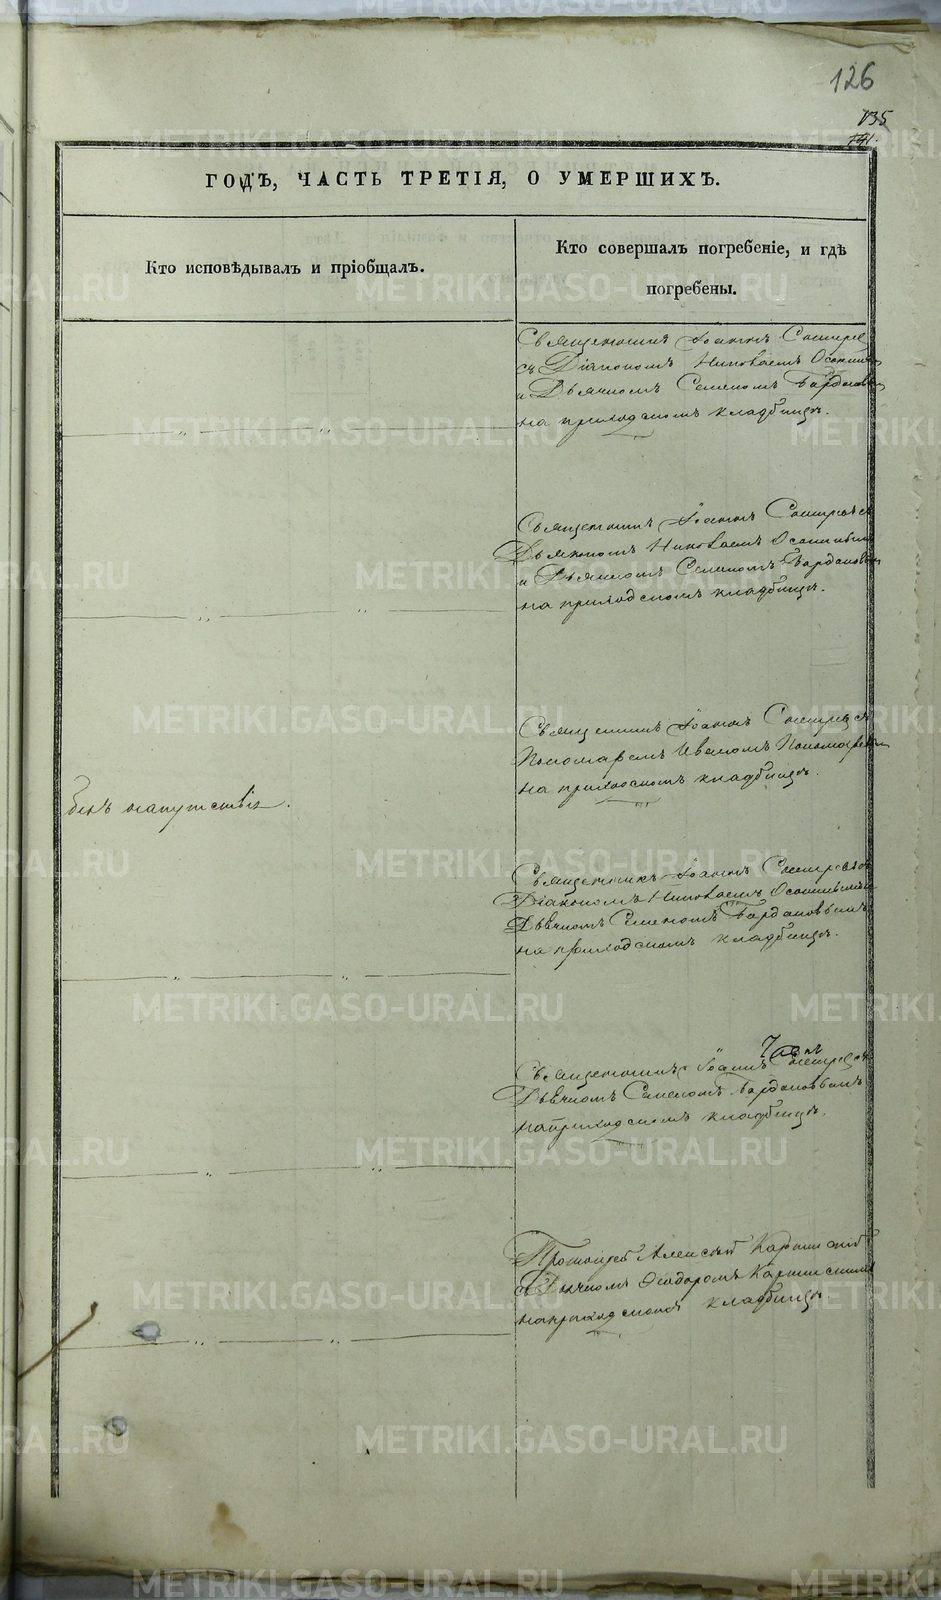 126
135
141.
ГОДЪ, ЧАСТЬ ТРЕТІЯ, О УМЕРШИХЪ.
Кто исповѣдывалъ и пріобщалъ.
Кто совершалъ погребеніе, и гдѣ
погребены.
Священникъ Іоаннъ
съ Діакономъ Николаемъ
и Дьячкомъ Семеномъ
на приходскомъ кладбищѣ.
Священникъ Іоаннъ
Дьякономъ Николаемъ
и Дьячкомъ Семеномъ
на приходскомъ кладбищѣ.
Священникъ Іоаннъ
Пономаремъ Иваномъ Пономаревым
на приходскомъ кладбищѣ.
безъ напутствія.
Священникъ Іоаннъ
Діакономъ Николаемъ
Дьячкомъ Семеномъ
на приходскомъ кладбищѣ.
Священникъ Іоаннъ
Дьячкомъ Семеномъ
на приходскомъ кладбищѣ.
Протоіерей Алексѣй Карпинскій
съ Дьячкомъ Ѳеодоромъ Карпинскимъ
на приходскомъ кладбищѣ
METRIKI.GASO-URAL.RU